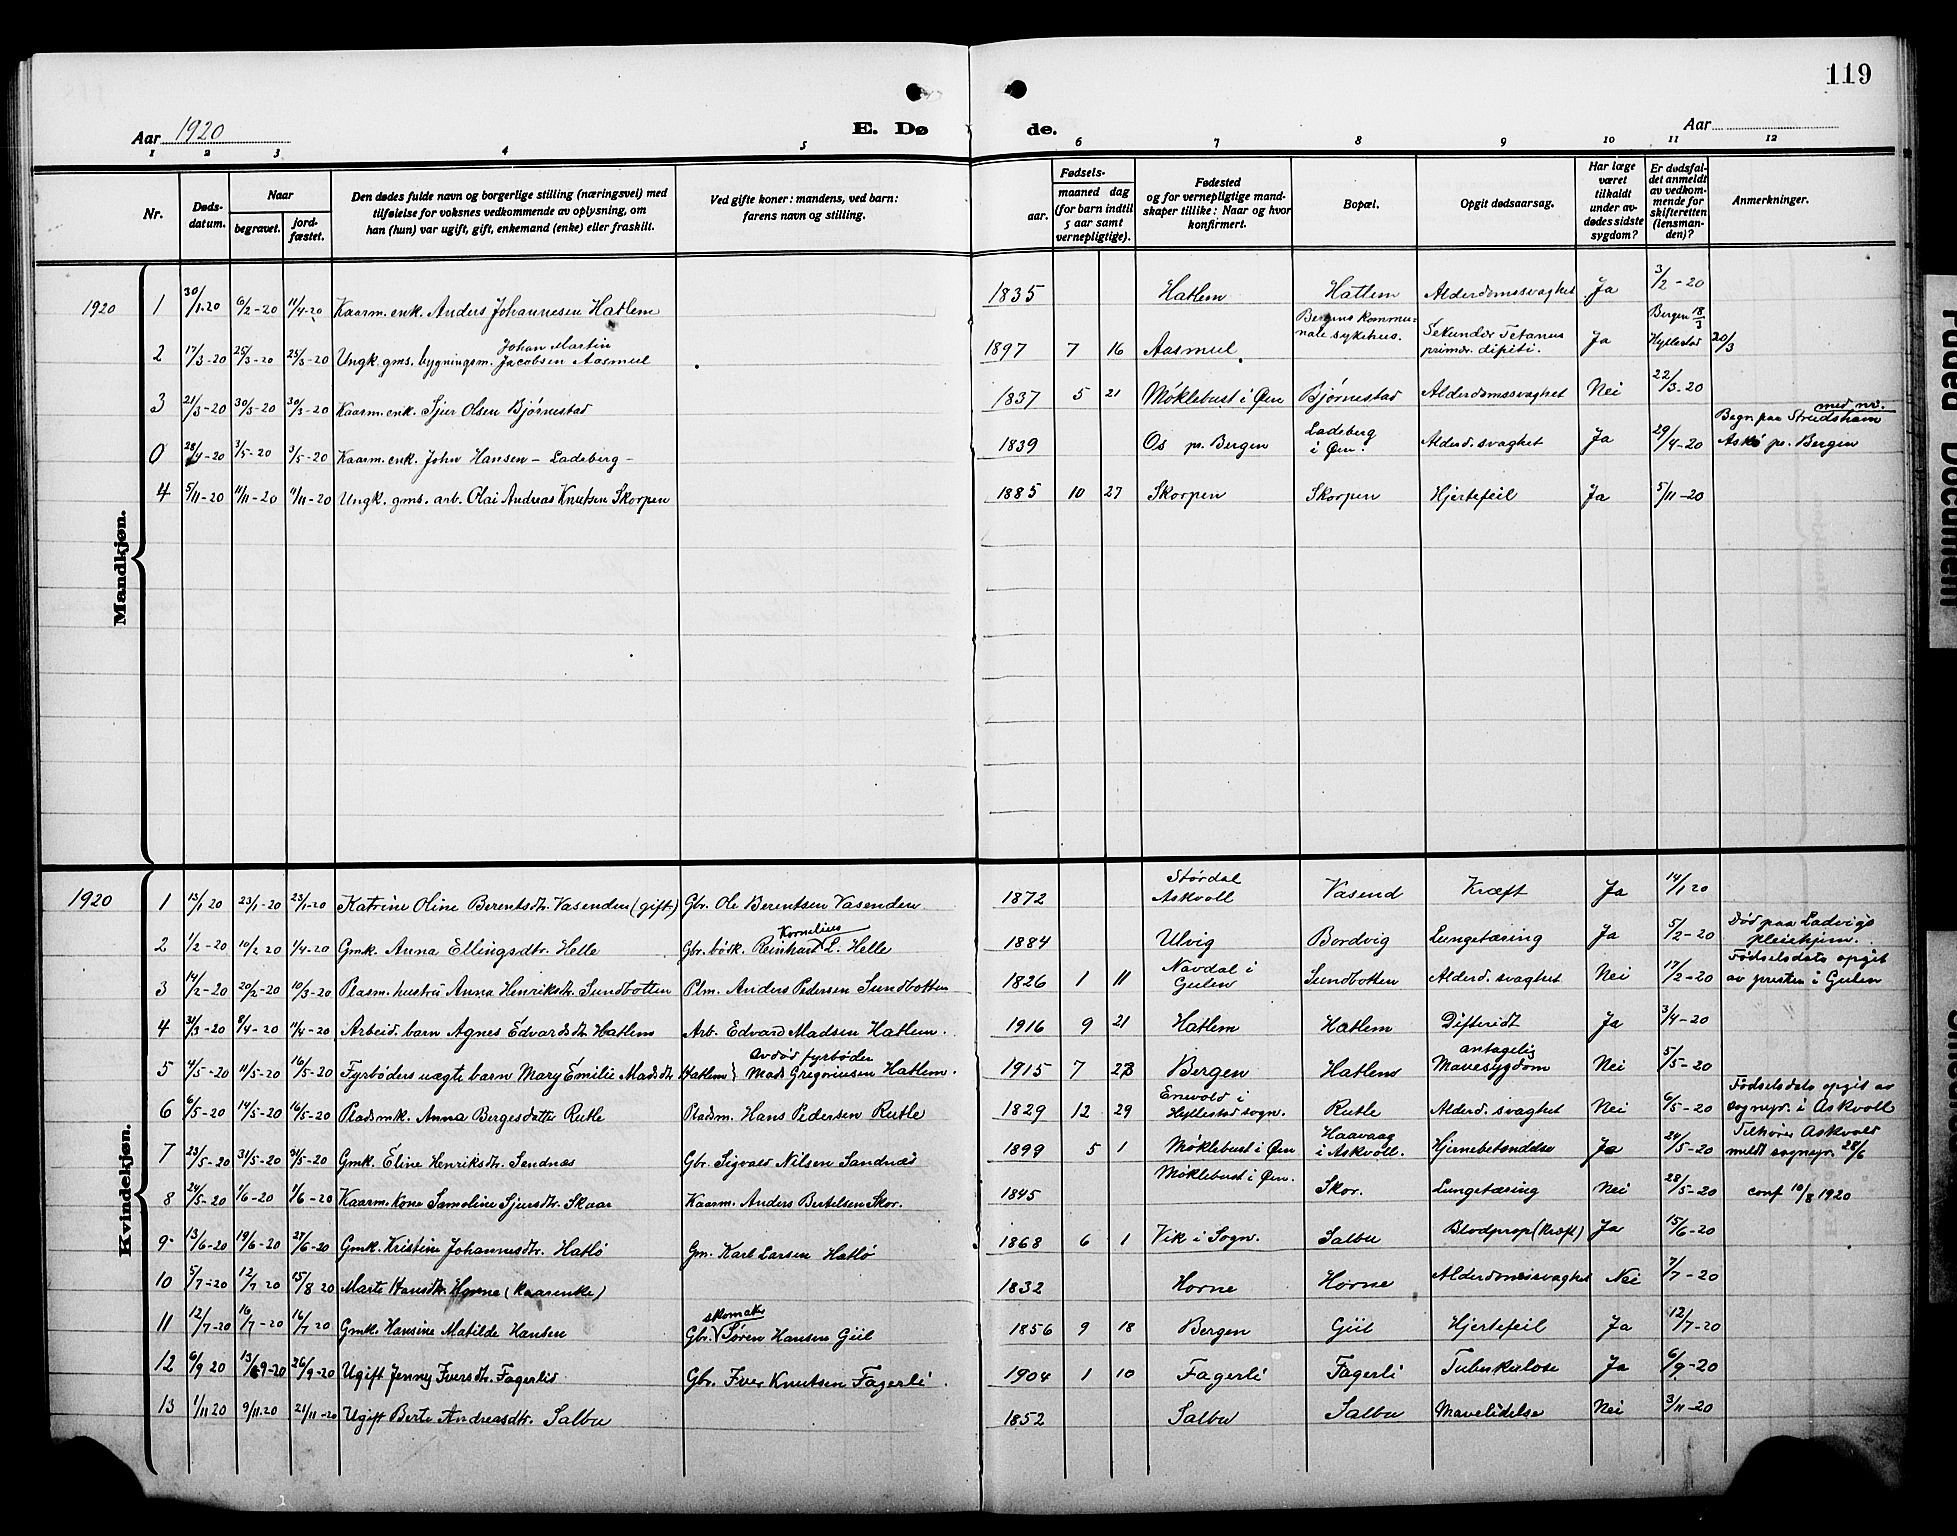 119
Aar 1920
E. Dø de.
Aar
1 2 3 4 5 6 7 8 9 10 11 12
Nr.
Døds-
datum.
Naar
begravet.
jord-
fæstet.
Den dødes fulde navn og borgerlige stilling (næringsvei) med
tilføielse for voksnes vedkommende av oplysning, om
han (hun) var ugift, gift, enkemand (enke) eller fraskilt.
Ved gifte koner: mandens, ved barn:
farens navn og stilling.
Fødsels-
aar.
maaned dag
(for barn indtil
5 aar samt
vernepligtige).
Fødested
og for vernepligtige mand-
skaper tillike: Naar og hvor
konfirmert.
Bopæl.
Opgit dødsaarsag.
Har læge
været
tilkaldt
under av-
dødes sidste
sygdom?
Er dødsfal-
det anmeldt
av vedkom-
mende for
skifteretten
(lensman-
den)?
Anmerkninger.
Mandkjøn.
1920 1 30/1.20 6/2-20 11/4-20 Kaarm. enk. Anders Johannesen Hatlem 1835 Hatlem Hatlem Alderdomssvaghet Ja 3/2-20
2 17/3-20 25/3-20 25/3-20 Ungk. gms. bygningsm. Johan Martin Jacobsen Aasmul 1897 7 16 Aasmul Bergens kommu-
nale sykehus. Sekundær Tetanus
primær dipiti. Ja Bergen 18/3
Hyllestad 20/3
3 21/3-20 30/3-20 30/3-20 Kaarm. enk. Sjur Olsen Bjørnestad 1837 5 21 Møklebust i Øen Bjørnestad Alderdomssvaghet Nei 22/3-20
0 28/4-20 3/5-20 3/5-20 Kaarm. enk. John Hansen - Ladeberg - 1839 Os pr. Bergen Ladeberg
i Øen. Alderd. svaghet Ja 29/4-20 med nr.
Begr. paa Strudshavn
Askø pr. Bergen
4 5/11-20 11/11-20 11/11-20 Ungk. gms. arb. Olai Andreas Knutsen Skorpen 1885 10 27 Skorpen Skorpen Hjertefeil Ja 5/11-20
Kvindekjøn.
1920 1 13/1 20 23/1-20 23/1-20 Katrine Oline Berentsdtr. Vasenden (gift) Gbr. Ole Berentsen Vasenden 1872 Størdal
Askvoll Vasend Kræft Ja 14/1 20
2 1/2-20 10/2 20 1/4-20 Gmk. Anna Ellingsdtr. Helle Gbr. bøsk. Reinhart Kornelius L. Helle 1884 Ulvig Bordvig Lungetæring Ja 5/2-20 Død paa Ladvigs
pleiehjem.
3 14/2-20 20/2-20 10/3-20 Plasm. hustru Anna Henriksdtr. Sundbotten Plm. Anders Pedersen Sundbotten 1826 1 11 Navdal i
Gulen Sundbotten Alderd. svaghet Nei 17/2-20 Fødselsdato opgit
av presten i Gulen
4 31/3-20 8/4-20 11/4-20 Arbeid. barn Agnes Edvardsdtr Hatlem Arb. Edvard Madsen Hatlem. 1916 9 21 Hatlem Hatlem Difterit Ja 3/4-20
5 4/5-20 11/5-20 16/5-20 Fyrbøders uægte barn Mary Emilie Madsdtr. Hatlem } Avdød fyrbøder
Mads Gregoriusen Hatlem. 1915 7 23 Bergen Hatlem antagelig
Mavesygdom Nei 5/5-20
6 6/5-20 14/5-20 16/5-20 Pladsmk. Anna Bergesdatter Rutle Pladsm. Hans Pedersen Rutle 1829 12 29 Enevold i
Hyllestad sogn. Rutle Alderd. svaghet Nei 6/5-20 Fødselsdato opgit av
sognepr. i Askvoll
7 23/5-20 31/5-20 31/5-20 Gmk. Eline Henriksdtr. Sandnæs Gbr. Sigvald Nilsen Sandnæs 1899 5 1 Møklebust i Øen Haavaag
i Askvoll. Hjernebetændelse Ja 24/5-20 Tilhører Askvold
meldt sognepr. 28/6
8 24/5-20 1/6-20 1/6-20 Kaarm. kone Samoline Sjursdtr. Skaar Kaarm. Anders Bertelsen Skor. 1845 Møklebust i Øen. Skor. Lungetæring Nei 28/5-20 conf 10/8 1920
9 13/6-20 19/6-20 27/6-20 Gmk. Kristine Johannesdtr. Hatlø Gm. Karl Larsen Hatlø 1868 6 1 Vik i Sogn. Salbu Blodprop (kræft) Ja 15/6-20
10 5/7-20 12/7 20 15/8 20 Marte Hansdtr. Horne (Kaarenke) 1832 Horne Horne Alderdomssvaghet Nei 7/7-20
11 12/7-20 16/7-20 16/7 20 Gmk. Hansine Matilde Hansen Gbr. skomaker Søren Hansen Giil 1856 9 18 Bergen Giil Hjertefeil Ja 12/7-20
12 6/9 20 13/9-20 26/9-20 Ugift Jenny Iversdtr. Fagerlid Gbr. Iver Knutsen Fagerli 1904 1 10 Fagerli Fagerli Tuberkulose Ja 6/9-20
13 1/11 20 9/11.20 21/11-20 Ugift Berte Andreasdtr. Salbu 1852 Salbu Salbu Mavelidelse Nei 3/11-20